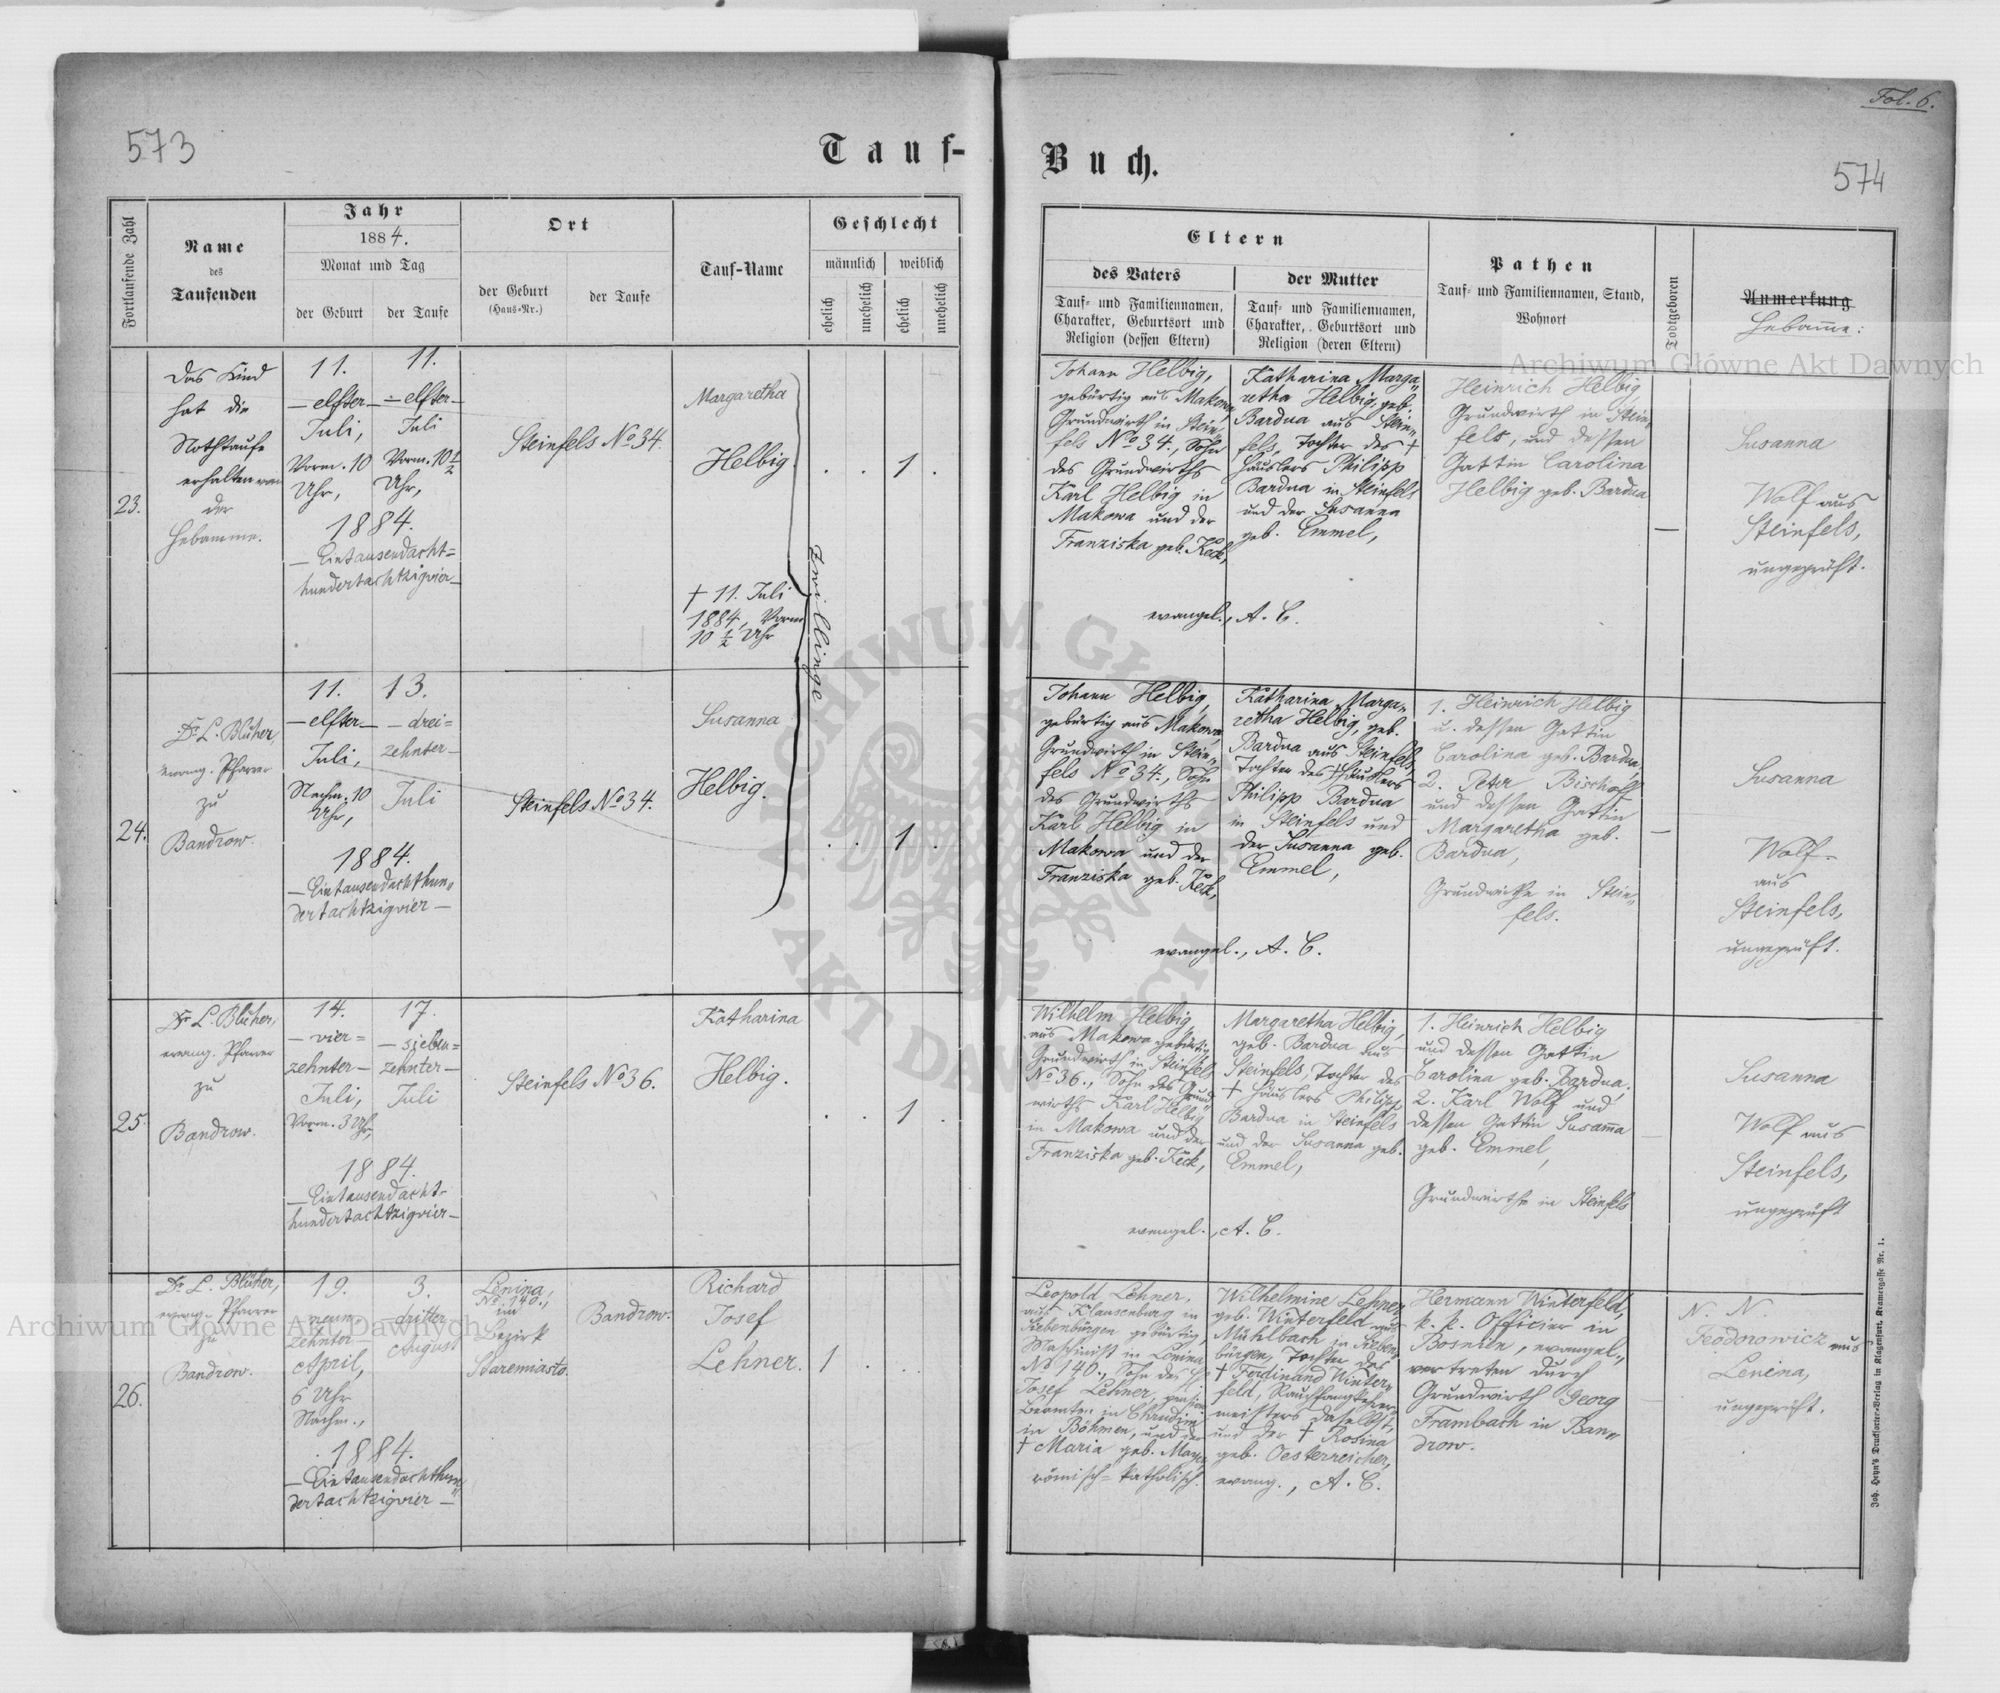 Fol. 6.
573
Tauf-
Buch.
574
Fortlaufende Zahl
Name
des
Taufenden
Jahr
1884.
Monat und Tag
der Geburt
der Taufe
Ort
der Geburt
(Haus-Nr.)
der Taufe
Tauf-Name
Geschlecht
männlich
weiblich
ehelich
unehelich
ehelich
unehelich
Eltern
des Vaters
Tauf- und Familiennamen,
Charakter, Geburtsort und
Religion (dessen Eltern)
der Mutter
Tauf- und Familiennamen,
Charakter, Geburtsort und
Religion (deren Eltern)
Pathen
Tauf- und Familiennamen, Stand,
Wohnort
Todtgeboren
Anmerkung
Hebamme:
23.
Das Kind
hat die
Nothtaufe
erhalten von
der
Hebamme.
11.
— elfter —
Juli,
Vorm. 10
Uhr,
11.
— elfter —
Juli
Vorm. 10 1/2
Uhr,
1884.
— Eintausendacht=
hundertachtzigvier —
Steinfels No 34.
Margaretha
Helbig.
† 11. Juli
1884, Vorm.
10 1/2 Uhr
Zwillinge
1
Johann Helbig,
gebürtig aus Makowa
Grundwirth in Stein-
fels No 34., Sohn
des Grundwirths
Karl Helbig in
Makowa und der
Franziska geb. Keck,
Katharina Marga-
retha Helbig, geb.
Bardua aus Stein-
fels, Tochter des †
Häuslers Philipp
Bardua in Steinfels
und der Susanna
geb. Emmel,
evangel., A. C.
Heinrich Helbig,
Grundwirth in Stein-
fels, und dessen
Gattin Carolina
Helbig geb. Bardua
—
Susanna
Wolf aus
Steinfels,
ungeprüft.
24.
Dr. L. Blüher,
evang. Pfarrer
zu
Bandrow.
11.
— elfter —
Juli,
Nachm. 10
Uhr,
13.
— drei=
zehnter —
Juli
1884.
— Eintausendachthun-
dertachtzigvier —
Steinfels No 34.
Susanna
Helbig.
1
Johann Helbig,
gebürtig aus Makowa,
Grundwirth in Stein-
fels No 34., Sohn
des Grundwirths
Karl Helbig in
Makowa und der
Franziska geb. Keck,
Katharina Marga-
retha Helbig, geb.
Bardua aus Steinfels,
Tochter des † Häuslers
Philipp Bardua
in Steinfels und
der Susanna geb.
Emmel,
evangel., A. C.
1. Heinrich Helbig
u. dessen Gattin
Carolina geb. Bardua,
2. Peter Bischoff
und dessen Gattin
Margaretha geb.
Bardua,
Grundwirthe in Stein-
fels.
—
Susanna
Wolf
aus
Steinfels,
ungeprüft.
25.
Dr. L. Blüher,
evang. Pfarrer
zu
Bandrow.
14.
— vier=
zehnter —
Juli,
Vorm. 3 Uhr,
17.
— sieben=
zehnter —
Juli
1884.
— Eintausendacht-
hundertachtzigvier —
Steinfels No 36.
Katharina
Helbig.
1
Wilhelm Helbig,
aus Makowa gebürtig,
Grundwirth in Steinfels
No 36., Sohn des Grund-
wirths Karl Helbig
in Makowa und der
Franziska geb. Keck,
Margaretha Helbig,
geb. Bardua aus
Steinfels, Tochter des
† Häuslers Philipp
Bardua in Steinfels
und der Susanna geb.
Emmel,
evangel., A. C.
1. Heinrich Helbig
und dessen Gattin
Carolina geb. Bardua,
2. Karl Wolf und
dessen Gattin Susanna
geb. Emmel,
Grundwirthe in Steinfels
Susanna
Wolf aus
Steinfels,
ungeprüft
26.
Dr. L. Blüher,
evang. Pfarrer
zu
Bandrow.
19.
— neun-
zehnter —
April,
6 Uhr
Nachm.,
3.
— dritter —
August
1884.
— Eintausendachthun-
dertachtzigvier —
Lenina,
No 140.,
im
Bezirk
Staremiasto.
Bandrow.
Richard
Josef
Lehner.
1
Leopold Lehner,
aus Klausenburg in
Siebenbürgen gebürtig,
Maschinist in Lenina
No 140., Sohn des
Josef Lehner, pension.
Beamten in Chrudim
in Böhmen, und der
† Maria geb. Mayer
römisch-katholisch.
Wilhelmine Lehner,
geb. Winterfeld aus
Mühlbach in Sieben-
bürgen, Tochter des
† Ferdinand Winter-
feld, Rauchfangkehrer-
meisters daselbst,
und der † Rosina
geb. Oesterreicher,
evang., A. C.
Hermann Winterfeld,
k. k. Officier in
Bosnien, evangel.,
vertreten durch
Grundwirth Georg
Frambach in Ban-
drow.
N. N.
Teodorowicz aus
Lenina,
ungeprüft.
Joh. Heyn's Drucksorten-Verlag in Klagenfurt, Kramergasse Nr. 1.
Archiwum Główne Akt Dawnych
Archiwum Główne Akt Dawnych